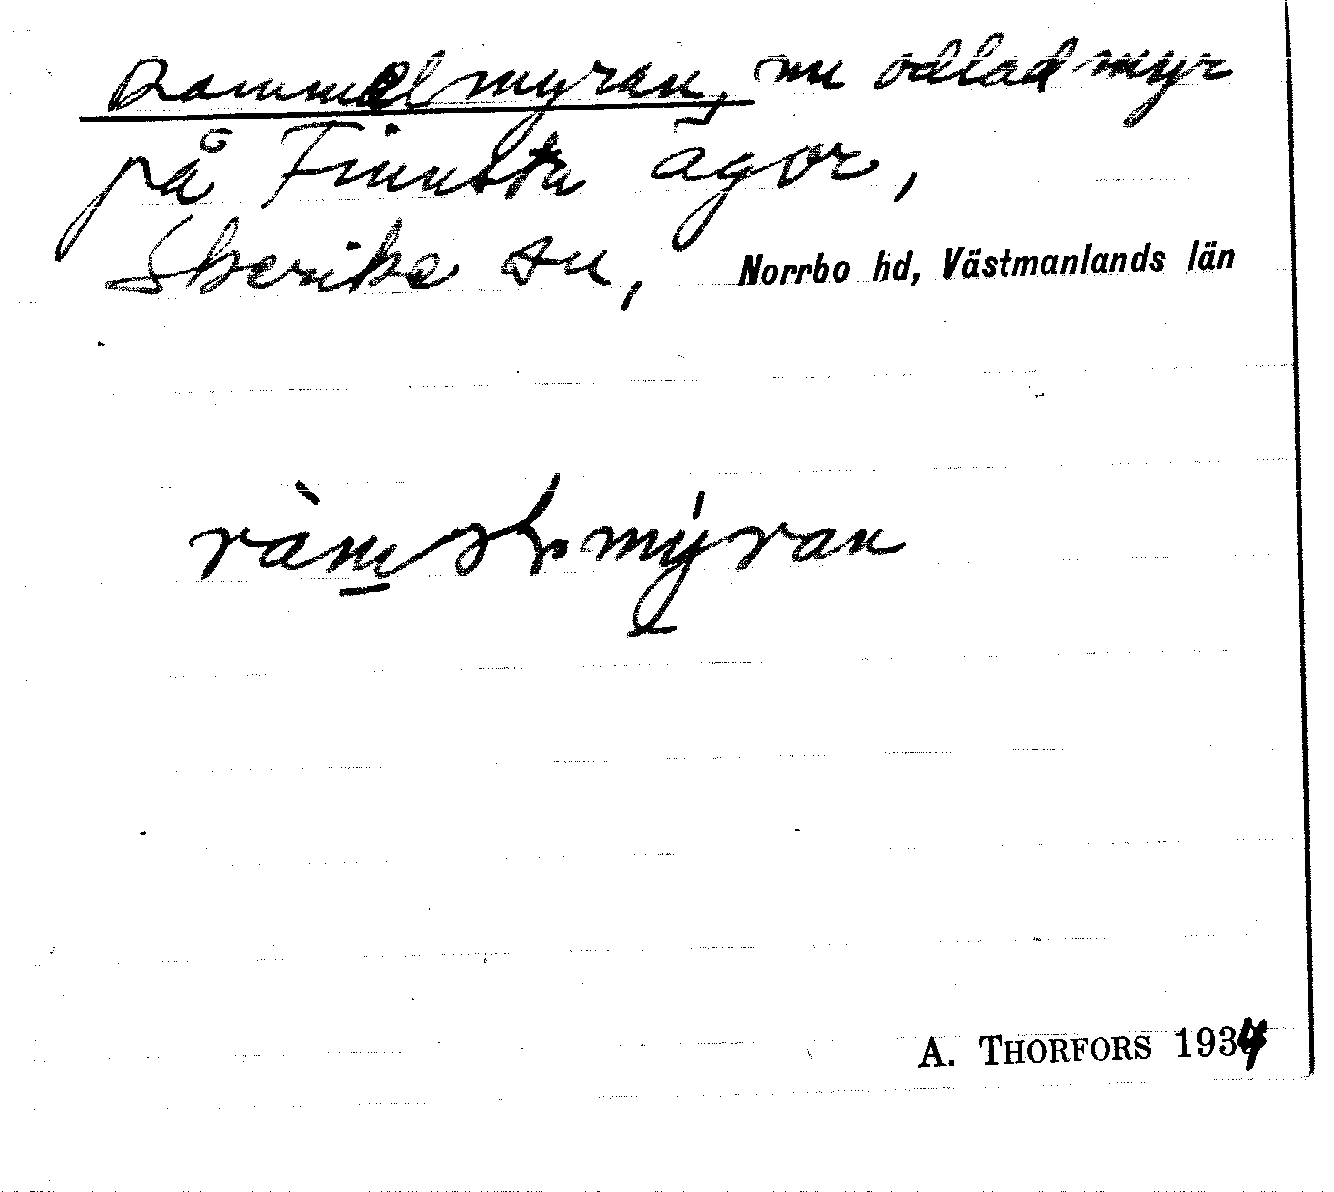 Rammelmyran, nu odlad myr
på Finnsta ägor,
Skerike sn, Norrbo hd, Västmanlands län
A. THORFORS 1934